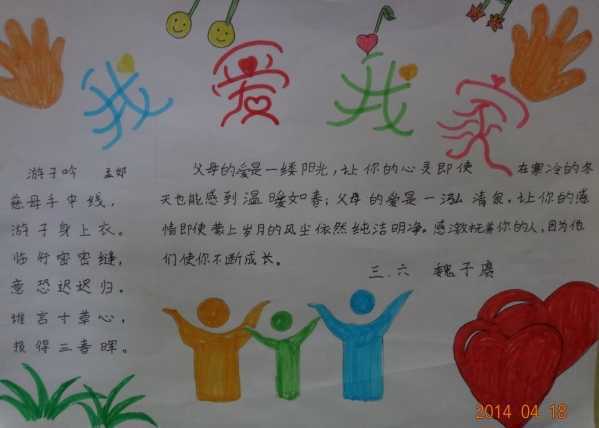 我爱我家
游子吟 孟郊
慈母手中线，
游子身上衣。
临行密密缝，
意恐迟迟归。
谁言寸草心，
报得三春晖。
父母的爱是一缕阳光，让你的心灵即使 在寒冷的冬
天也能感到温暖如春；父母的爱是一泓清泉，让你的感
情即使蒙上岁月的风尘依然纯洁明净。感激抚养你的人，因为他
们使你不断成长。
三.六 魏子
2014 04 18